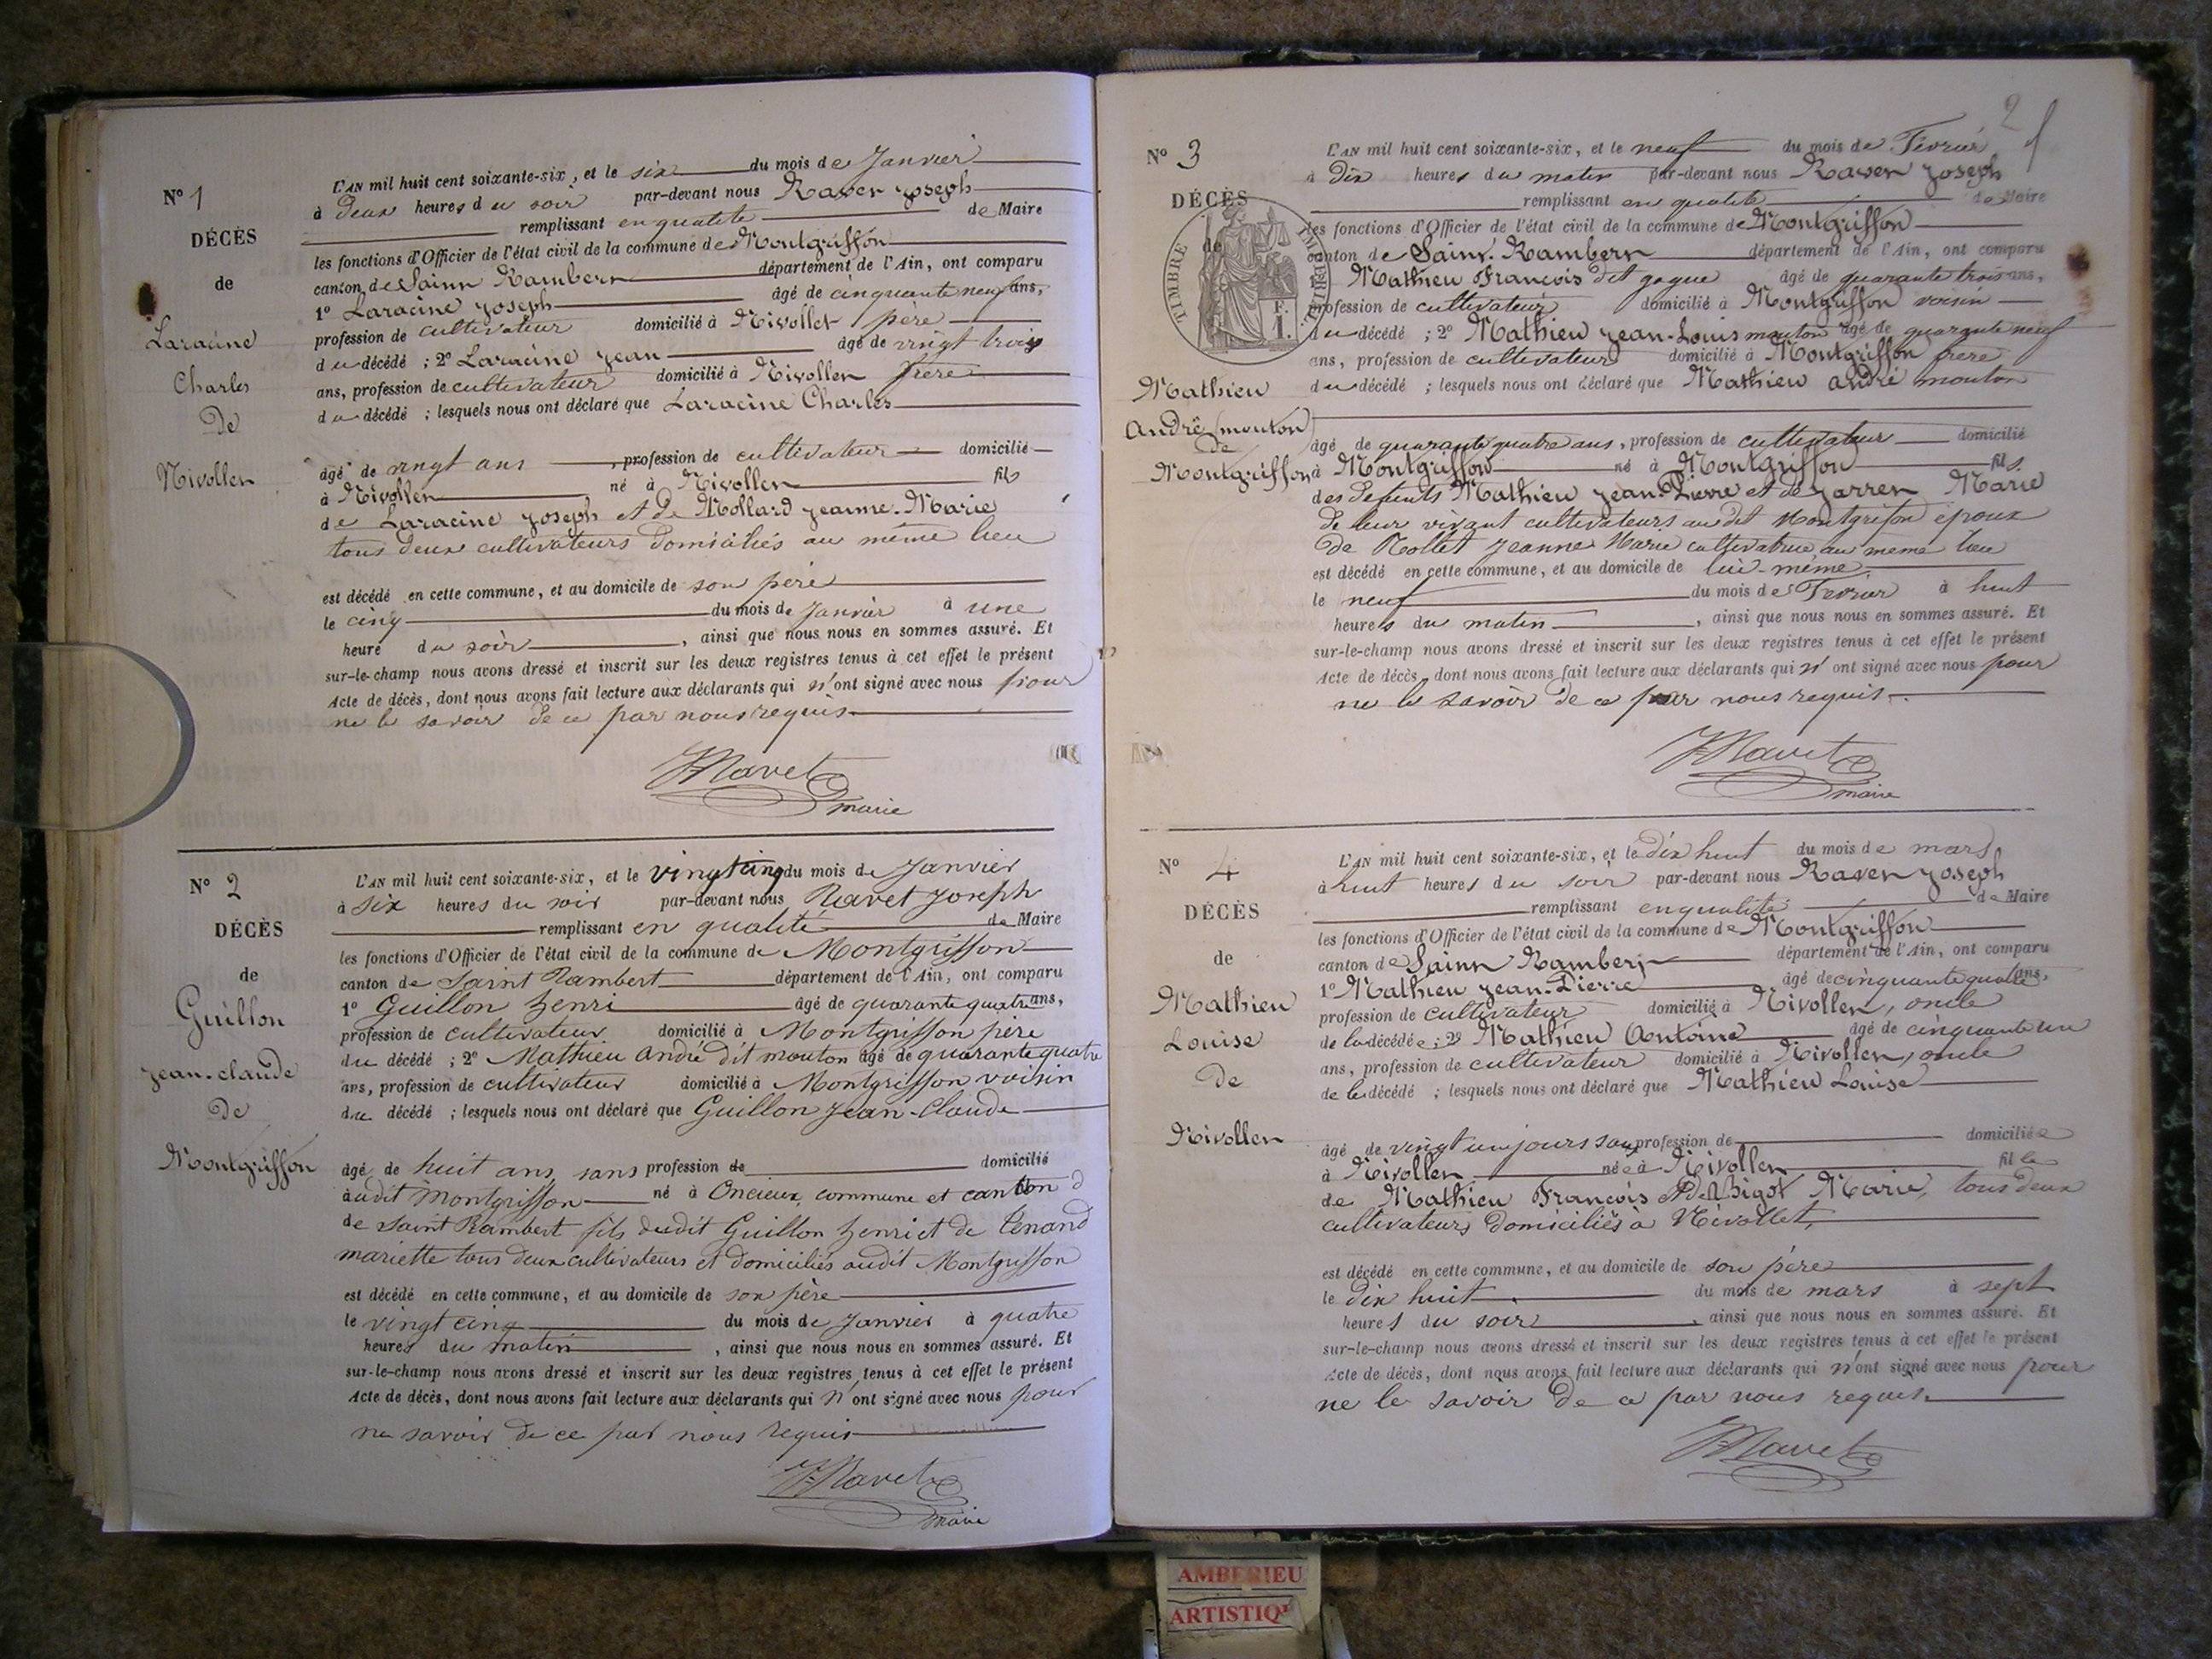 N° 1
DÉCÈS
de
Laracine
Charles
De
Nivollet
L'AN mil huit cent soixante-six, et le six du mois de Janvier
à deux heures du soir par-devant nous Ravet Joseph
remplissant en qualité de Maire
les fonctions d'Officier de l'état civil de la commune de Montgriffon
canton de Saint Rambert département de l'Ain, ont comparu
1° Laracine Joseph âgé de cinquante neuf ans,
profession de cultivateur domicilié à Nivollet père
du décédé ; 2° Laracine Jean âgé de vingt trois
ans, profession de cultivateur domicilié à Nivollet frère
du décédé ; lesquels nous ont déclaré que Laracine Charles
âgé de vingt ans, profession de cultivateur domicilié
à Nivollet né à Nivollet fils
de Laracine Joseph et de Mollard Jeanne-Marie
tous deux cultivateurs domiciliés au même lieu
est décédé en cette commune, et au domicile de son père
le cinq du mois de Janvier à une
heure du soir, ainsi que nous nous en sommes assuré. Et
sur-le-champ nous avons dressé et inscrit sur les deux registres tenus à cet effet le présent
Acte de décès, dont nous avons fait lecture aux déclarants qui n'ont signé avec nous pour
ne le savoir de ce par nous requis
JRavet
maire
N° 2
DÉCÈS
de
Guillon
Jean-claude
De
Montgriffon
L'AN mil huit cent soixante-six, et le vingt cinq du mois de Janvier
à six heures du soir par-devant nous Ravet Joseph
remplissant en qualité de Maire
les fonctions d'Officier de l'état civil de la commune de Montgriffon
canton de Saint Rambert département de l'Ain, ont comparu
1° Guillon henri âgé de quarante quatre ans,
profession de cultivateur domicilié à Montgriffon père
du décédé ; 2° Mathieu andré dit mouton âgé de quarante quatre
ans, profession de cultivateur domicilié à Montgriffon voisin
du décédé ; lesquels nous ont déclaré que Guillon Jean-Claude
âgé de huit ans, sans profession de domicilié
audit Montgriffon né à Oncieux commune et canton d
de Saint Rambert fils dudit Guillon henri et de Tenand
mariette tous deux cultivateurs et domiciliés audit Montgriffon
est décédé en cette commune, et au domicile de son père
le vingt cinq du mois de Janvier à quatre
heures du matin, ainsi que nous nous en sommes assuré. Et
sur-le-champ nous avons dressé et inscrit sur les deux registres tenus à cet effet le présent
Acte de décès, dont nous avons fait lecture aux déclarants qui n'ont signé avec nous pour
ne savoir de ce par nous requis
JRavet
maire
2
N° 3
DÉCÈS
de
TIMBRE IMPERIAL
1 F.
Mathieu
André (mouton)
de
Montgriffon
L'AN mil huit cent soixante-six, et le neuf du mois de Fevrier
à dix heures du matin par-devant nous Ravet Joseph
remplissant en qualité de Maire
les fonctions d'Officier de l'état civil de la commune de Montgriffon
canton de Saint-Rambert département de l'Ain, ont comparu
Mathieu François dit gogue âgé de quarante trois ans,
profession de cultivateur domicilié à Montgriffon voisin
du décédé ; 2° Mathieu Jean-Louis mouton âgé de quarante neuf
ans, profession de cultivateur domicilié à Montgriffon frère
du décédé ; lesquels nous ont déclaré que Mathieu andré mouton
âgé de quarante quatre ans, profession de cultivateur domicilié
à Montgriffon né à Montgriffon fils
des defunts Mathieu Jean-Pierre et de Jarren Marie
de leur vivant cultivateurs audit Montgrifon époux
de Mollet Jeanne Marie cultivatrice au même lieu
est décédé en cette commune, et au domicile de lui-même
le neuf du mois de Fevrier à huit
heures du matin, ainsi que nous nous en sommes assuré. Et
sur-le-champ nous avons dressé et inscrit sur les deux registres tenus à cet effet le présent
Acte de décès, dont nous avons fait lecture aux déclarants qui n'ont signé avec nous pour
ne le savoir de ce par nous requis.
JRavet
maire
N° 4
DÉCÈS
de
Mathieu
Louise
De
Nivollet
L'AN mil huit cent soixante-six, et le dix huit du mois de mars
à huit heures du soir par-devant nous Ravet Joseph
remplissant en qualité de Maire
les fonctions d'Officier de l'état civil de la commune de Montgriffon
canton de Saint Rambert département de l'Ain, ont comparu
1° Mathieu Jean-Pierre âgé de cinquante quatre ans,
profession de cultivateur domicilié à Nivollet, oncle
de la décédée ; 2° Mathieu Antoine âgé de cinquante un
ans, profession de cultivateur domicilié à Nivollet, oncle
de la décédé ; lesquels nous ont déclaré que Mathieu Louise
âgé de vingt un jours sans profession de domiciliée
à Nivollet née à Nivollet fille
de Mathieu François et de Bigot Marie, tous deux
cultivateurs domiciliés à Nivollet,
est décédé en cette commune, et au domicile de son père
le dix huit du mois de mars à sept
heures du soir, ainsi que nous nous en sommes assuré. Et
sur-le-champ nous avons dressé et inscrit sur les deux registres tenus à cet effet le présent
Acte de décès, dont nous avons fait lecture aux déclarants qui n'ont signé avec nous pour
ne le savoir de ce par nous requis.
JRavet
AMBERIEU
ARTISTIQ